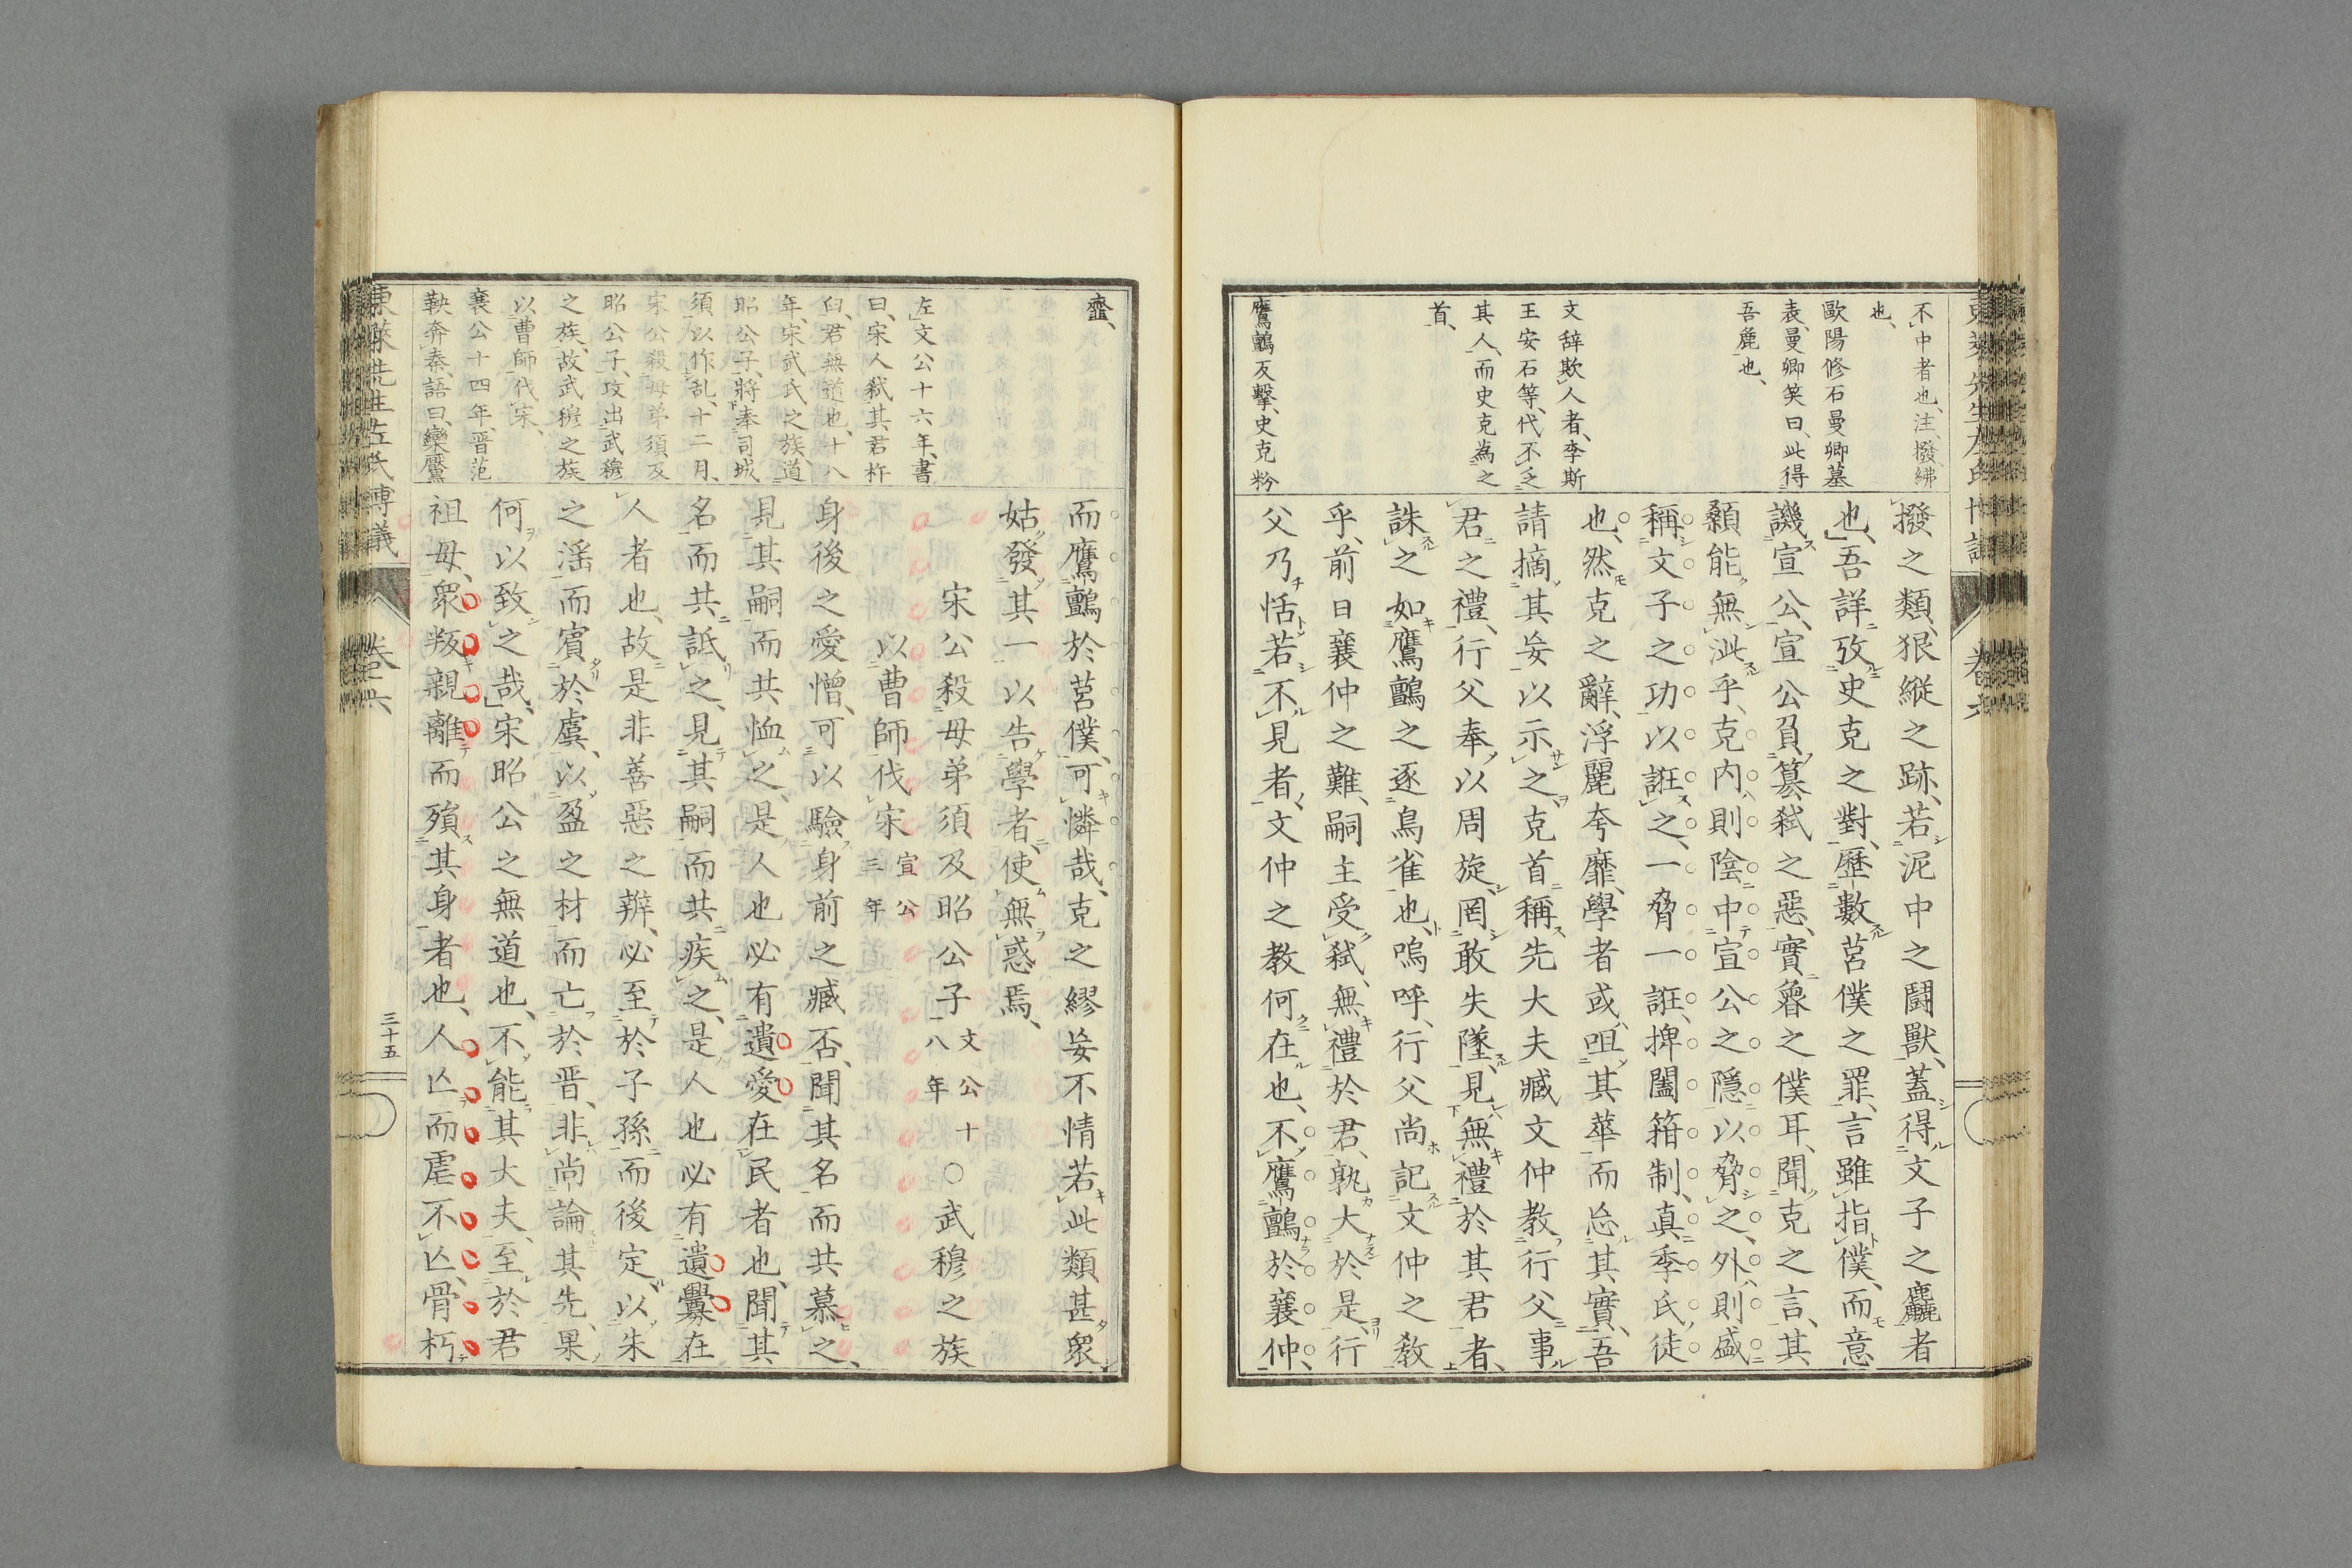 不中者也、注、撥紼
也、
歐陽修石曼卿墓
表、曼卿笑曰、此得
吾麁也、
文辞欺人者、李斯
王安石等、代不乏
其人、而史克為之
首、
鷹鸇反擊、史克粉
撥之類、狠縱之跡、若泥中之鬪獸、蓋得文子之麤者
也、吾詳攷史克之對、歷數莒僕之罪、言雖指僕、而意
譏宣公、宣公負篡弑之惡、實魯之僕耳、聞克之言、其
顙能無泚乎、克内則陰中宣公之隱以脅之、外則盛
稱文子之功以誑之、一脅一誑、捭闔箝制、真季氏徒
也、然克之辭、浮麗夸靡、學者或咀其華而忘其實、吾
請摘其妄以示之、克首稱先大夫臧文仲教行父事
君之禮、行父奉以周旋、罔敢失墜、見無禮於其君者、
誅之如鷹鸇之逐鳥雀也、嗚呼、行父尚記文仲之教
乎、前日襄仲之難、嗣主受弑、無禮於君、孰大於是、行
父乃恬若不見者、文仲之教何在也、不鷹鸇於襄仲、
虀、
左文公十六年、書
曰、宋人弑其君杵
臼、君無道也、十八
年、宋武氏之族、道
昭公子、將奉司城
須以作乱、十二月、
宋公殺母弟須及
昭公子、攻出武穆
之族、故武穆之族
以曹師伐宋、
襄公十四年、晋范
鞅奔秦、語曰、欒黶
而鷹鸇於莒僕、可憐哉、克之繆妄不情若此類甚衆
姑發其一以告學者、使無惑焉、
宋公殺母弟須及昭公子 文公十八年 ○武穆之族
以曹師伐宋 宣公三年
身後之愛憎、可以驗身前之臧否、聞其名而共慕之、
見其嗣而共恤之、是人也必有遺愛在民者也、聞其
名而共詆之、見其嗣而共疾之、是人也必有遺釁在
人者也、故是非善惡之辨、必至於子孫而後定、以朱
之淫而賓於虞、以盈之材而亡於晋、非尚論其先、果
何以致之哉、宋昭公之無道也、不能其大夫、至於君
祖母、衆叛親離而殞其身者也、人亾而虐不亾、骨朽
東萊先生左氏博議
卷之六
三十五